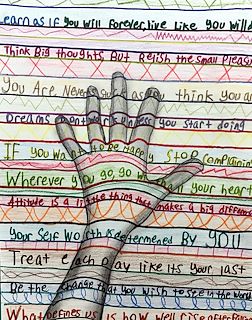 Learn as If You will forever, live Like You will
Think Big thoughts But Relish the Small Pleasu
You Are. Never as you think you are
Dreams don't work unless You Start doing
IF you want to be Happy Stop complainin
Wherever you go, go with all your heart
Attitute is a little thing that makes a big differen
your Self worth is determened By YOU
Treat each day like its your last
Be the change that you wish to see in the worl
What defines us is how well rise after